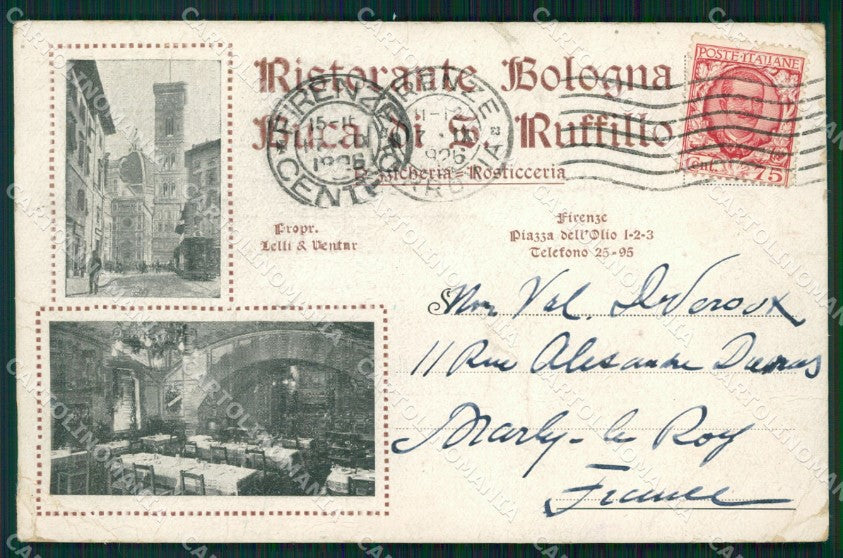 Ristorante Bologna
Buca di S. Ruffillo
Fiascheria=Rosticceria
Propr.
Lelli & Ventur
Firenze
Piazza dell'Olio 1-2-3
Telefono 25-95
POSTE ITALIANE
Cent. 75
FIRENZE
15-16
1926
CENTRO
1926
Val.
11 Rue Alexandre Dumas
Marly-le Roy
France
CARTOLINOMANIA